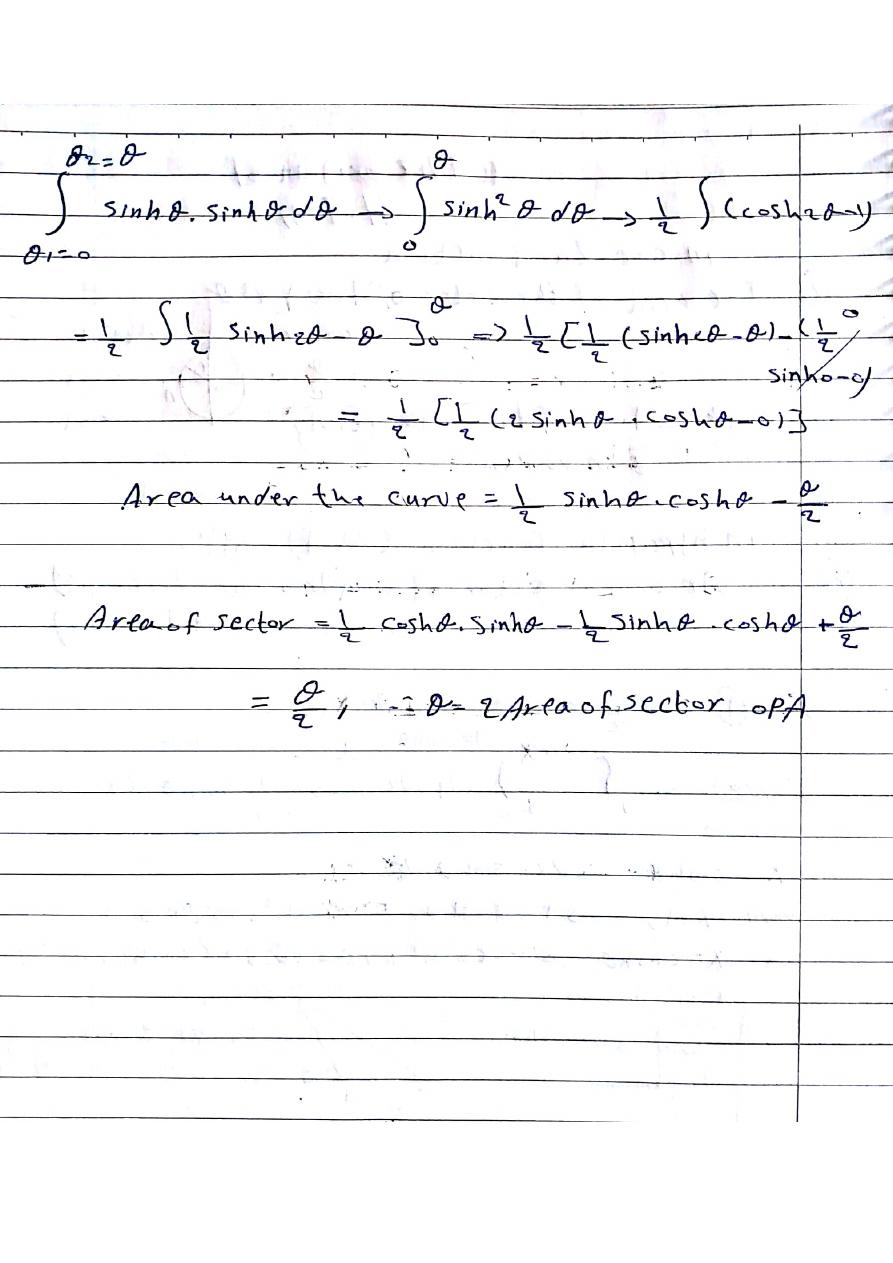 ∫_{θ1=0}^{θ2=θ} sinhθ. sinhθdθ → ∫_0^θ sinh²θ dθ → 1/2 ∫(cosh2θ-1)
= 1/2 ∫ 1/2 sinh2θ - θ ]_0^θ => 1/2 [1/2 (sinh2θ-θ) - (1/2 sinh0-0)^0
= 1/2 [1/2 (2 sinhθ . coshθ-θ)]
Area under the curve = 1/2 sinhθ.coshθ - θ/2
Area of sector = 1/2 coshθ. sinhθ - 1/2 sinhθ . coshθ + θ/2
= θ/2, ∴ θ= 2 Area of sector OPA